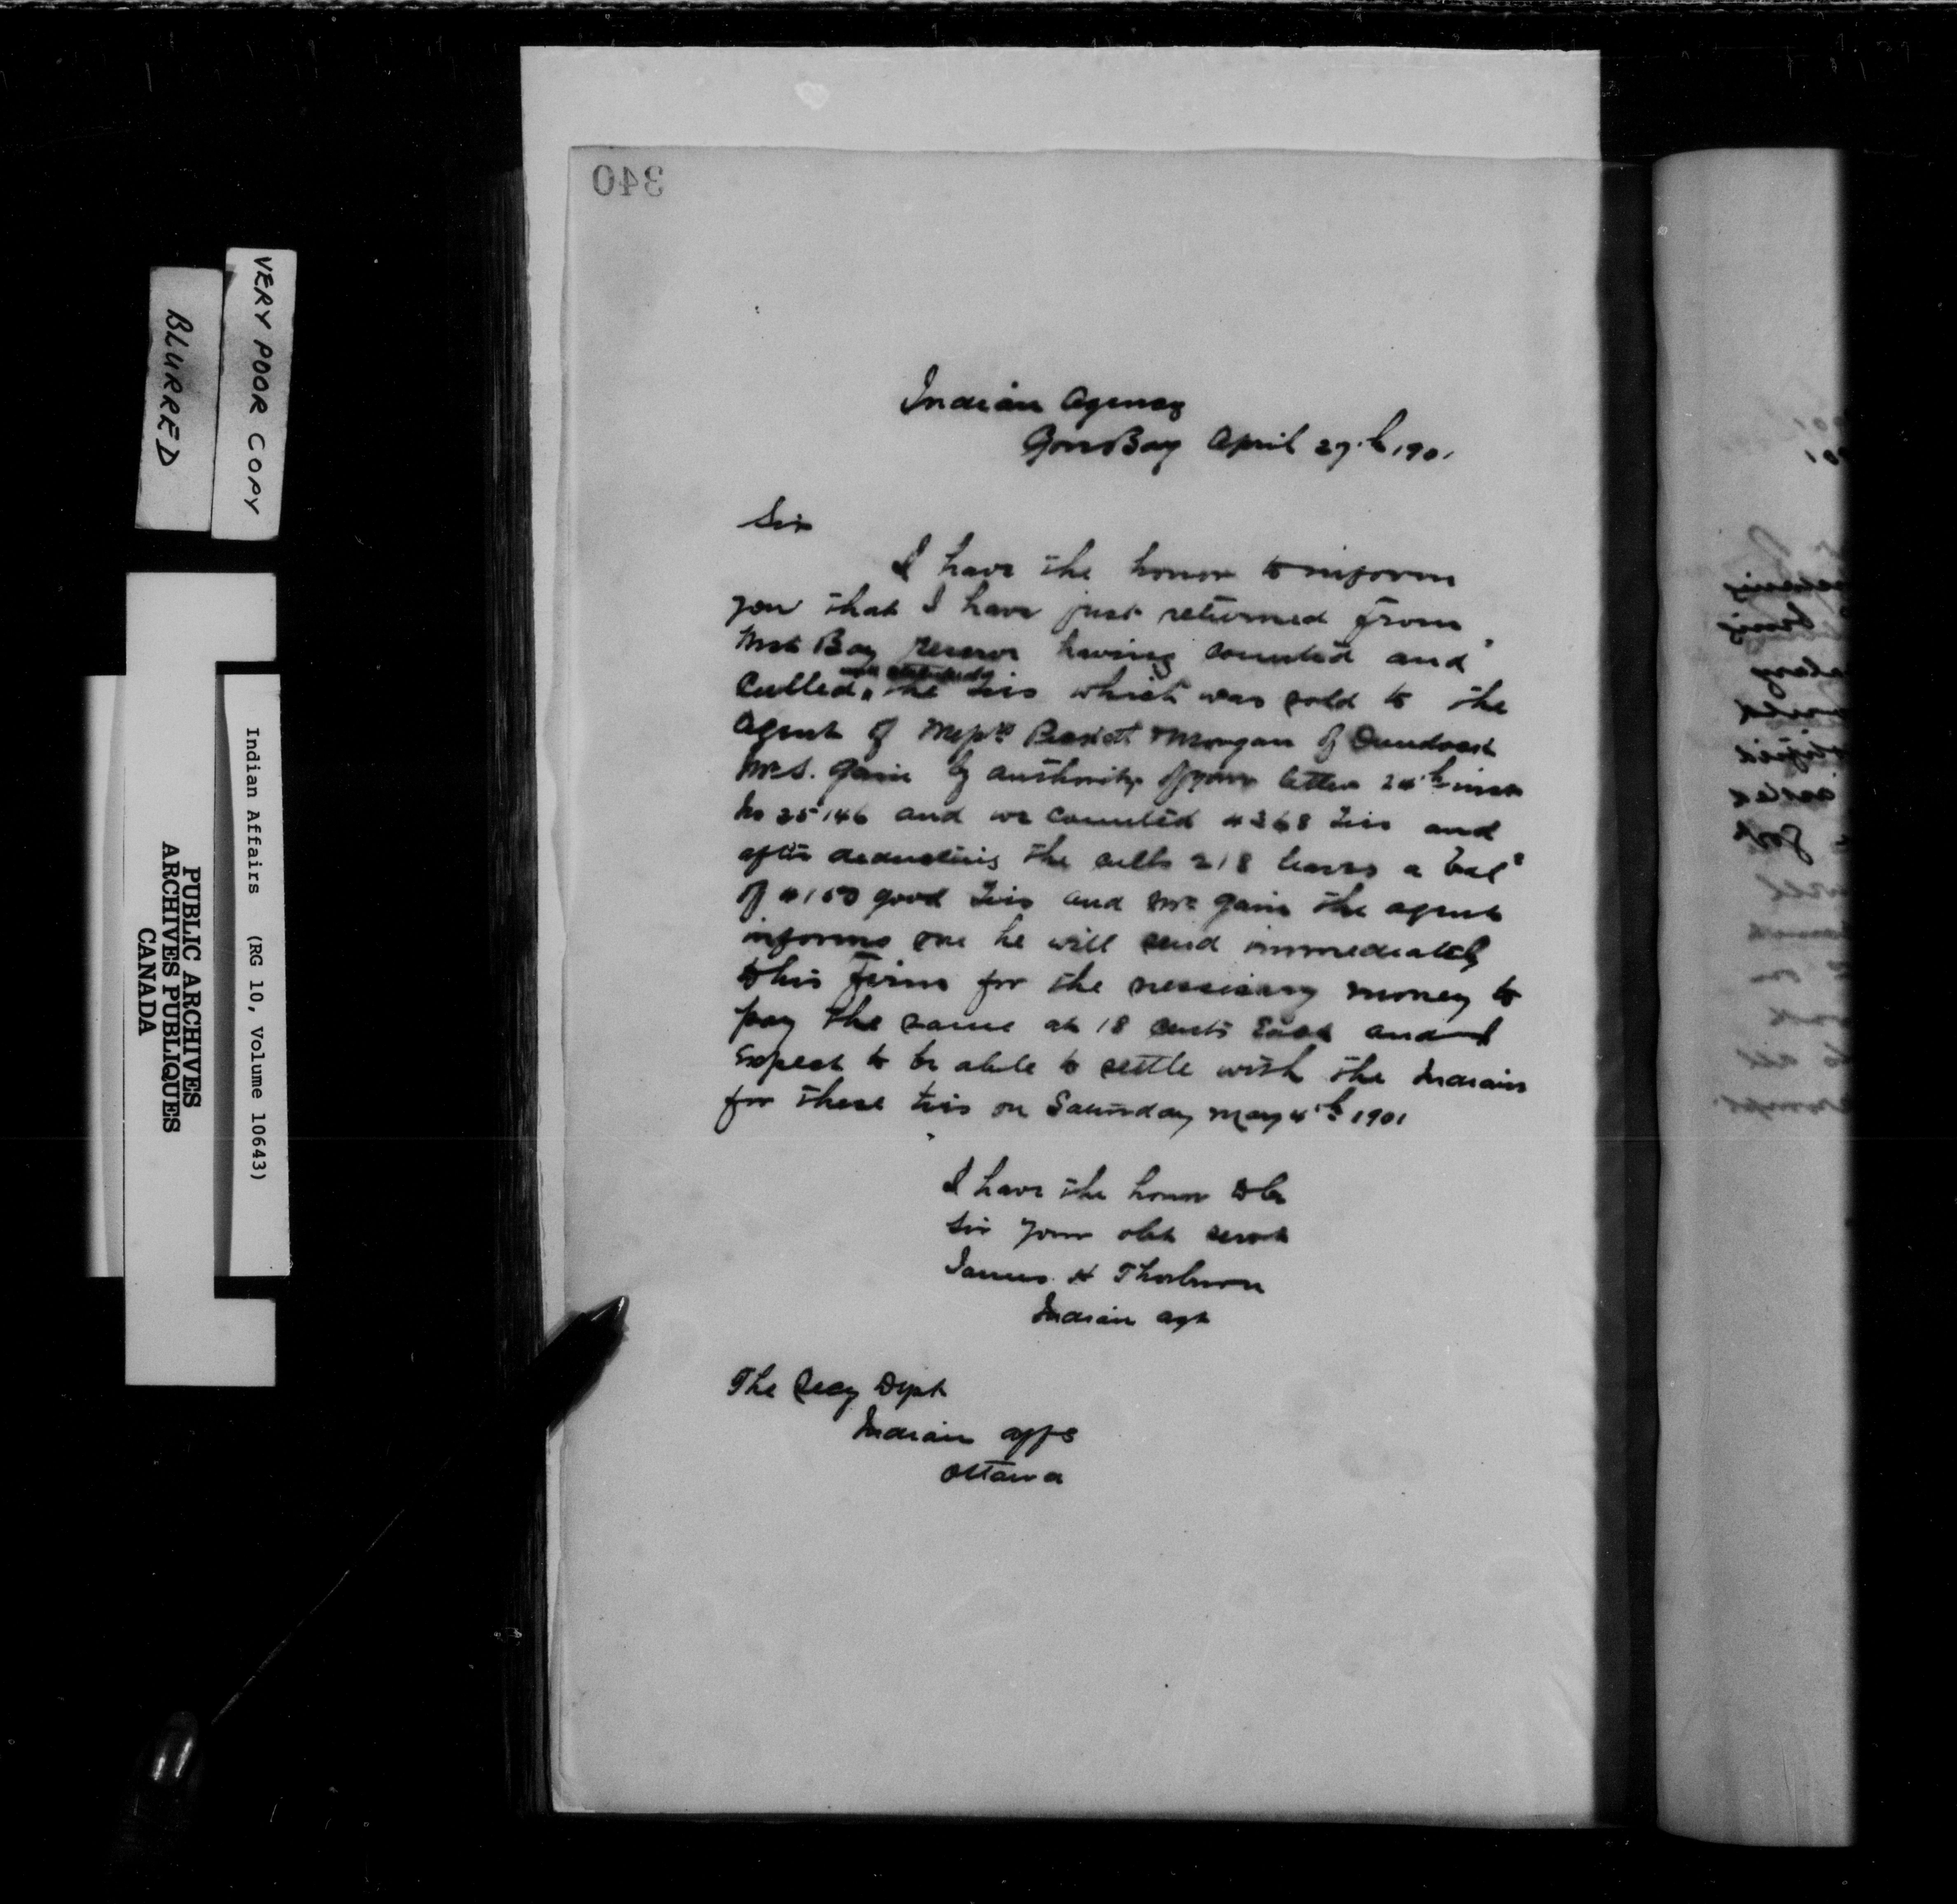 340
Indian Agency
Gore Bay April 27th 1901
Sir
I have the honor to inform
you that I have just returned from
West Bay reserve having counted and
Culled the ties which was sold to the
Agent of Messrs & Morgan of
Mr S. by authority of your letter 24th inst
No 25146 and we counted 4368 ties and
after deducting the culls 218 leaves a bale
of 4150 good ties and Mr the agent
informs me he will send immediately
to his firm for the nessisary money to
pay the same at 18 cents Each and I
Expect to be able to settle with the Indians
for these ties on Saturday May 4th 1901
I have the honor to be
Sir your obt servt
James H Thorburn
Indian agt
The Secy Dept
Indian affs
Ottawa
VERY POOR COPY
BLURRED
Indian Affairs (RG 10, Volume 10643)
PUBLIC ARCHIVES
ARCHIVES PUBLIQUES
CANADA